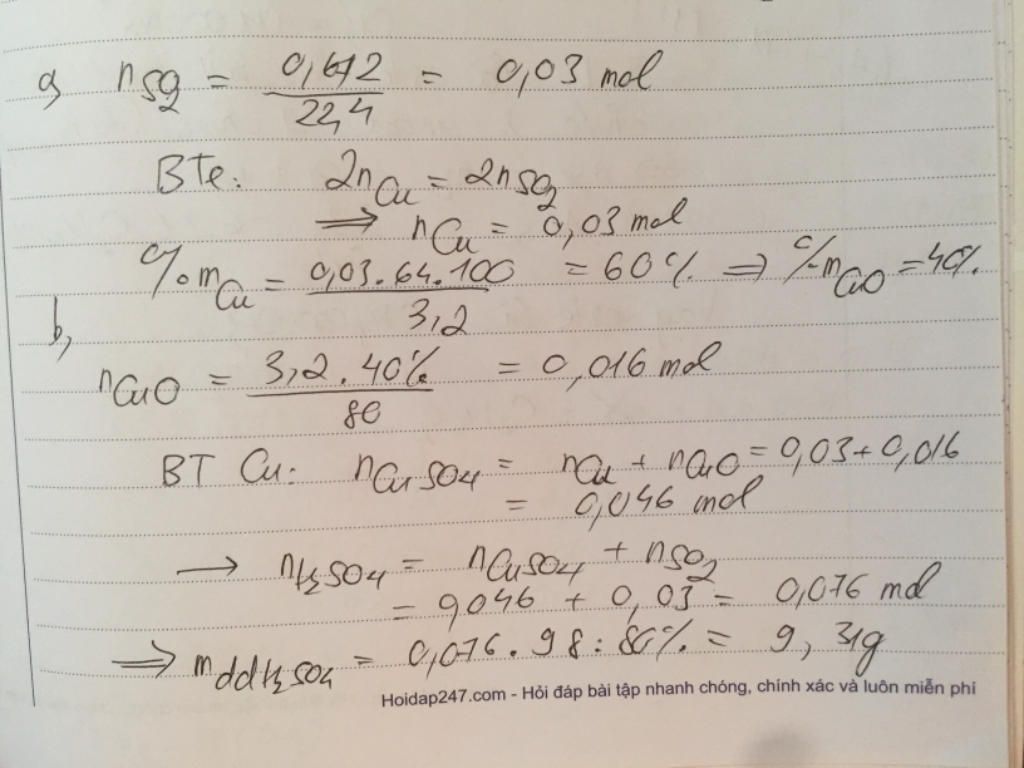 a, nSO2 = 0,672/22,4 = 0,03 mol
BTe: 2nCu = 2nSO2
⟹ nCu = 0,03 mol
%mCu = 0,03.64.100/3,2 = 60% ⟹ %mCuO = 40%
b,
nCuO = 3,2.40%/80 = 0,016 mol
BT Cu: nCuSO4 = nCu + nCuO = 0,03 + 0,016
= 0,046 mol
→ nH2SO4 = nCuSO4 + nSO2
= 0,046 + 0,03 = 0,076 mol
⟹ mddH2SO4 = 0,076.98:80% = 9,31g
Hoidap247.com - Hỏi đáp bài tập nhanh chóng, chính xác và luôn miễn phí